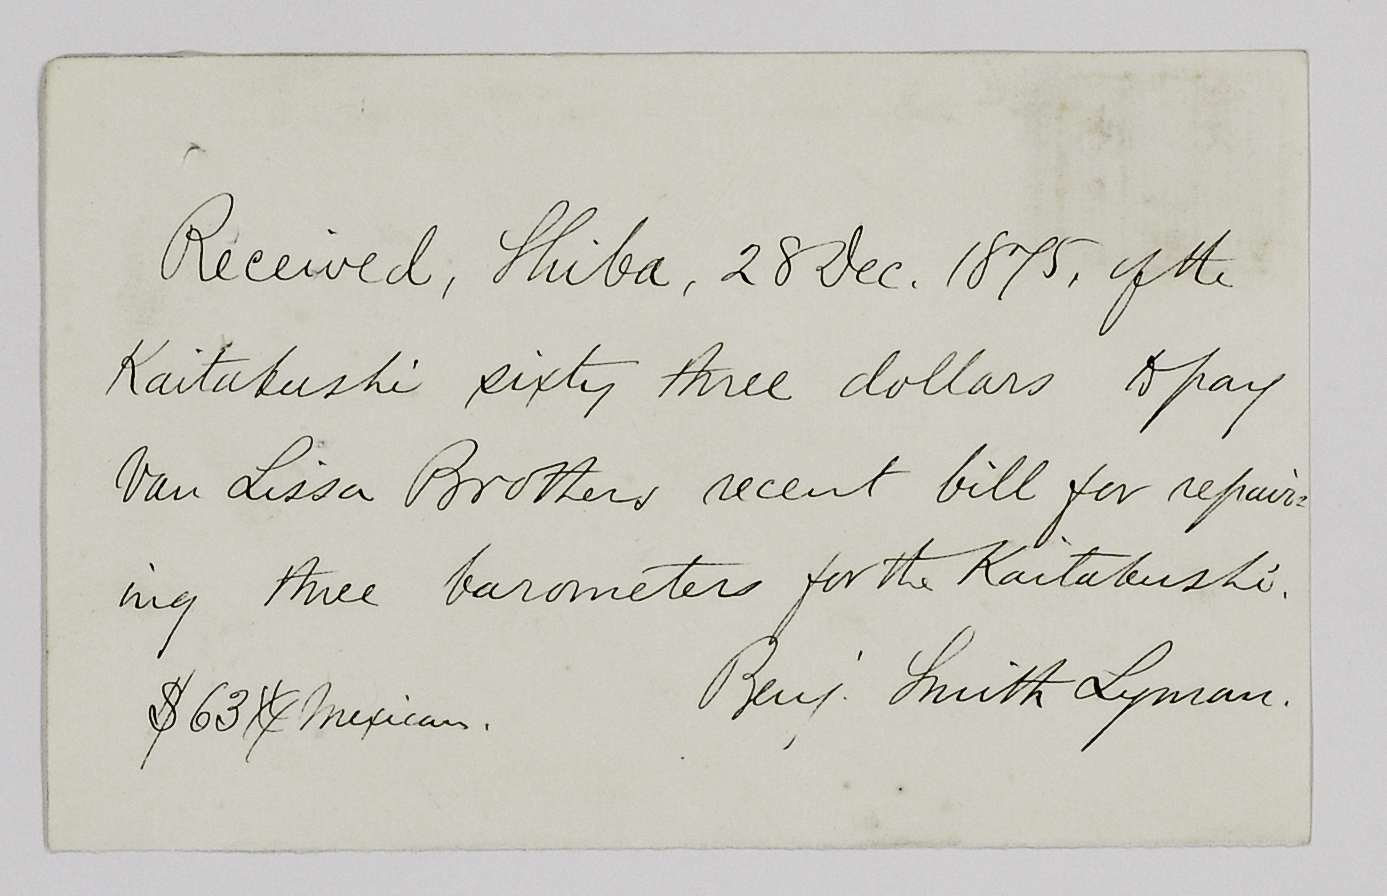 Received, Shiba, 28 Dec. 1875, of the
Kaitakushi sixty three dollars to pay
Van Lissa Brothers recent bill for repair=
ing three barometers for the Kaitakushi.
Benj. Smith Lyman.
$63 Mexican.